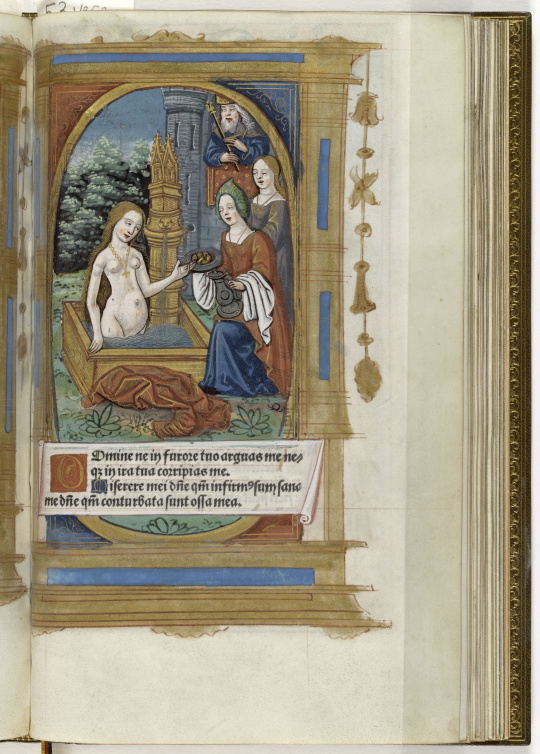 Domine ne in furore tuo arguas me ne-
qꝫ in ira tua corripias me.
Miserere mei dñe qm̃ infirmꝰ sum sana
me dñe qm̃ conturbata sunt ossa mea.